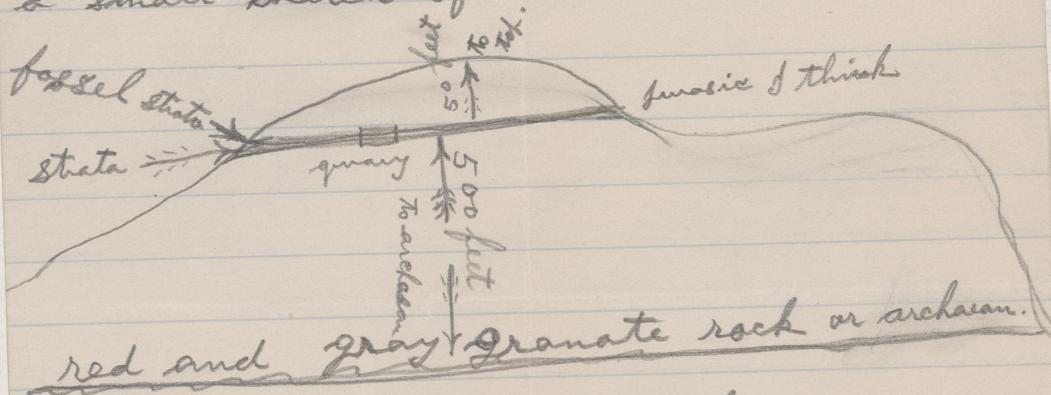 a small
fossel strata
strata
50 feet
to top.
jurasic I think
quary
500 feet
to archaean
red and gray granate rock or archaean.